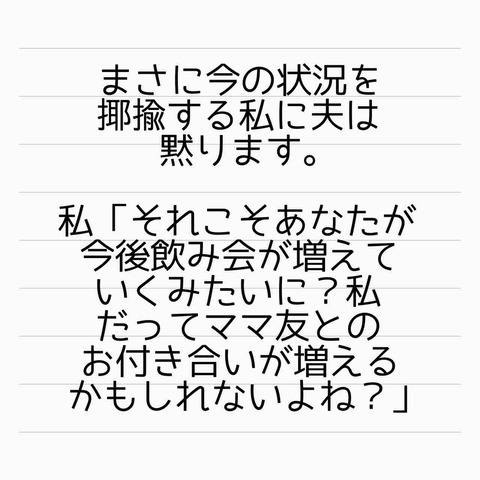 まさに今の状況を
揶揄する私に夫は
黙ります。
私「それこそあなたが
今後飲み会が増えて
いくみたいに？私
だってママ友との
お付き合いが増える
かもしれないよね？」